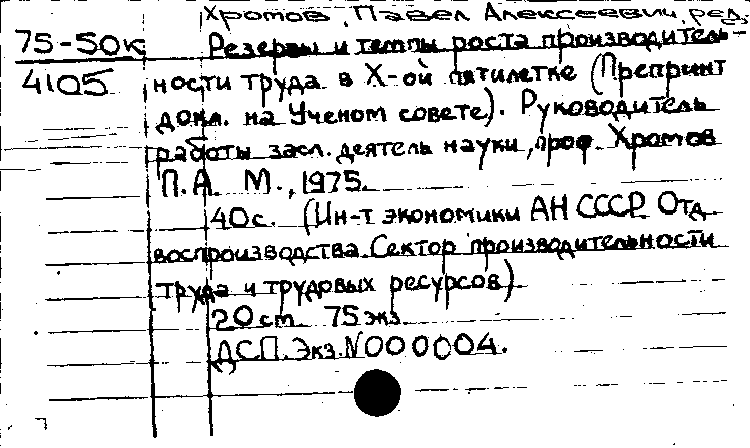 Хромов, Павел Алексеевич, ред.
75-50к Резервы и темпы роста производитель-
4105 ности труда в X-ой пятилетке (Препринт
докл. на Ученом совете). Руководитель
работы засл. деятель науки, проф. Хромов
П.А. М., 1975.
40с. (Ин-т экономики АН СССР. Отд.
воспроизводства. Сектор производительности
труда и трудовых ресурсов).
20 см. 75 экз.
ДСП. Экз. N000004.